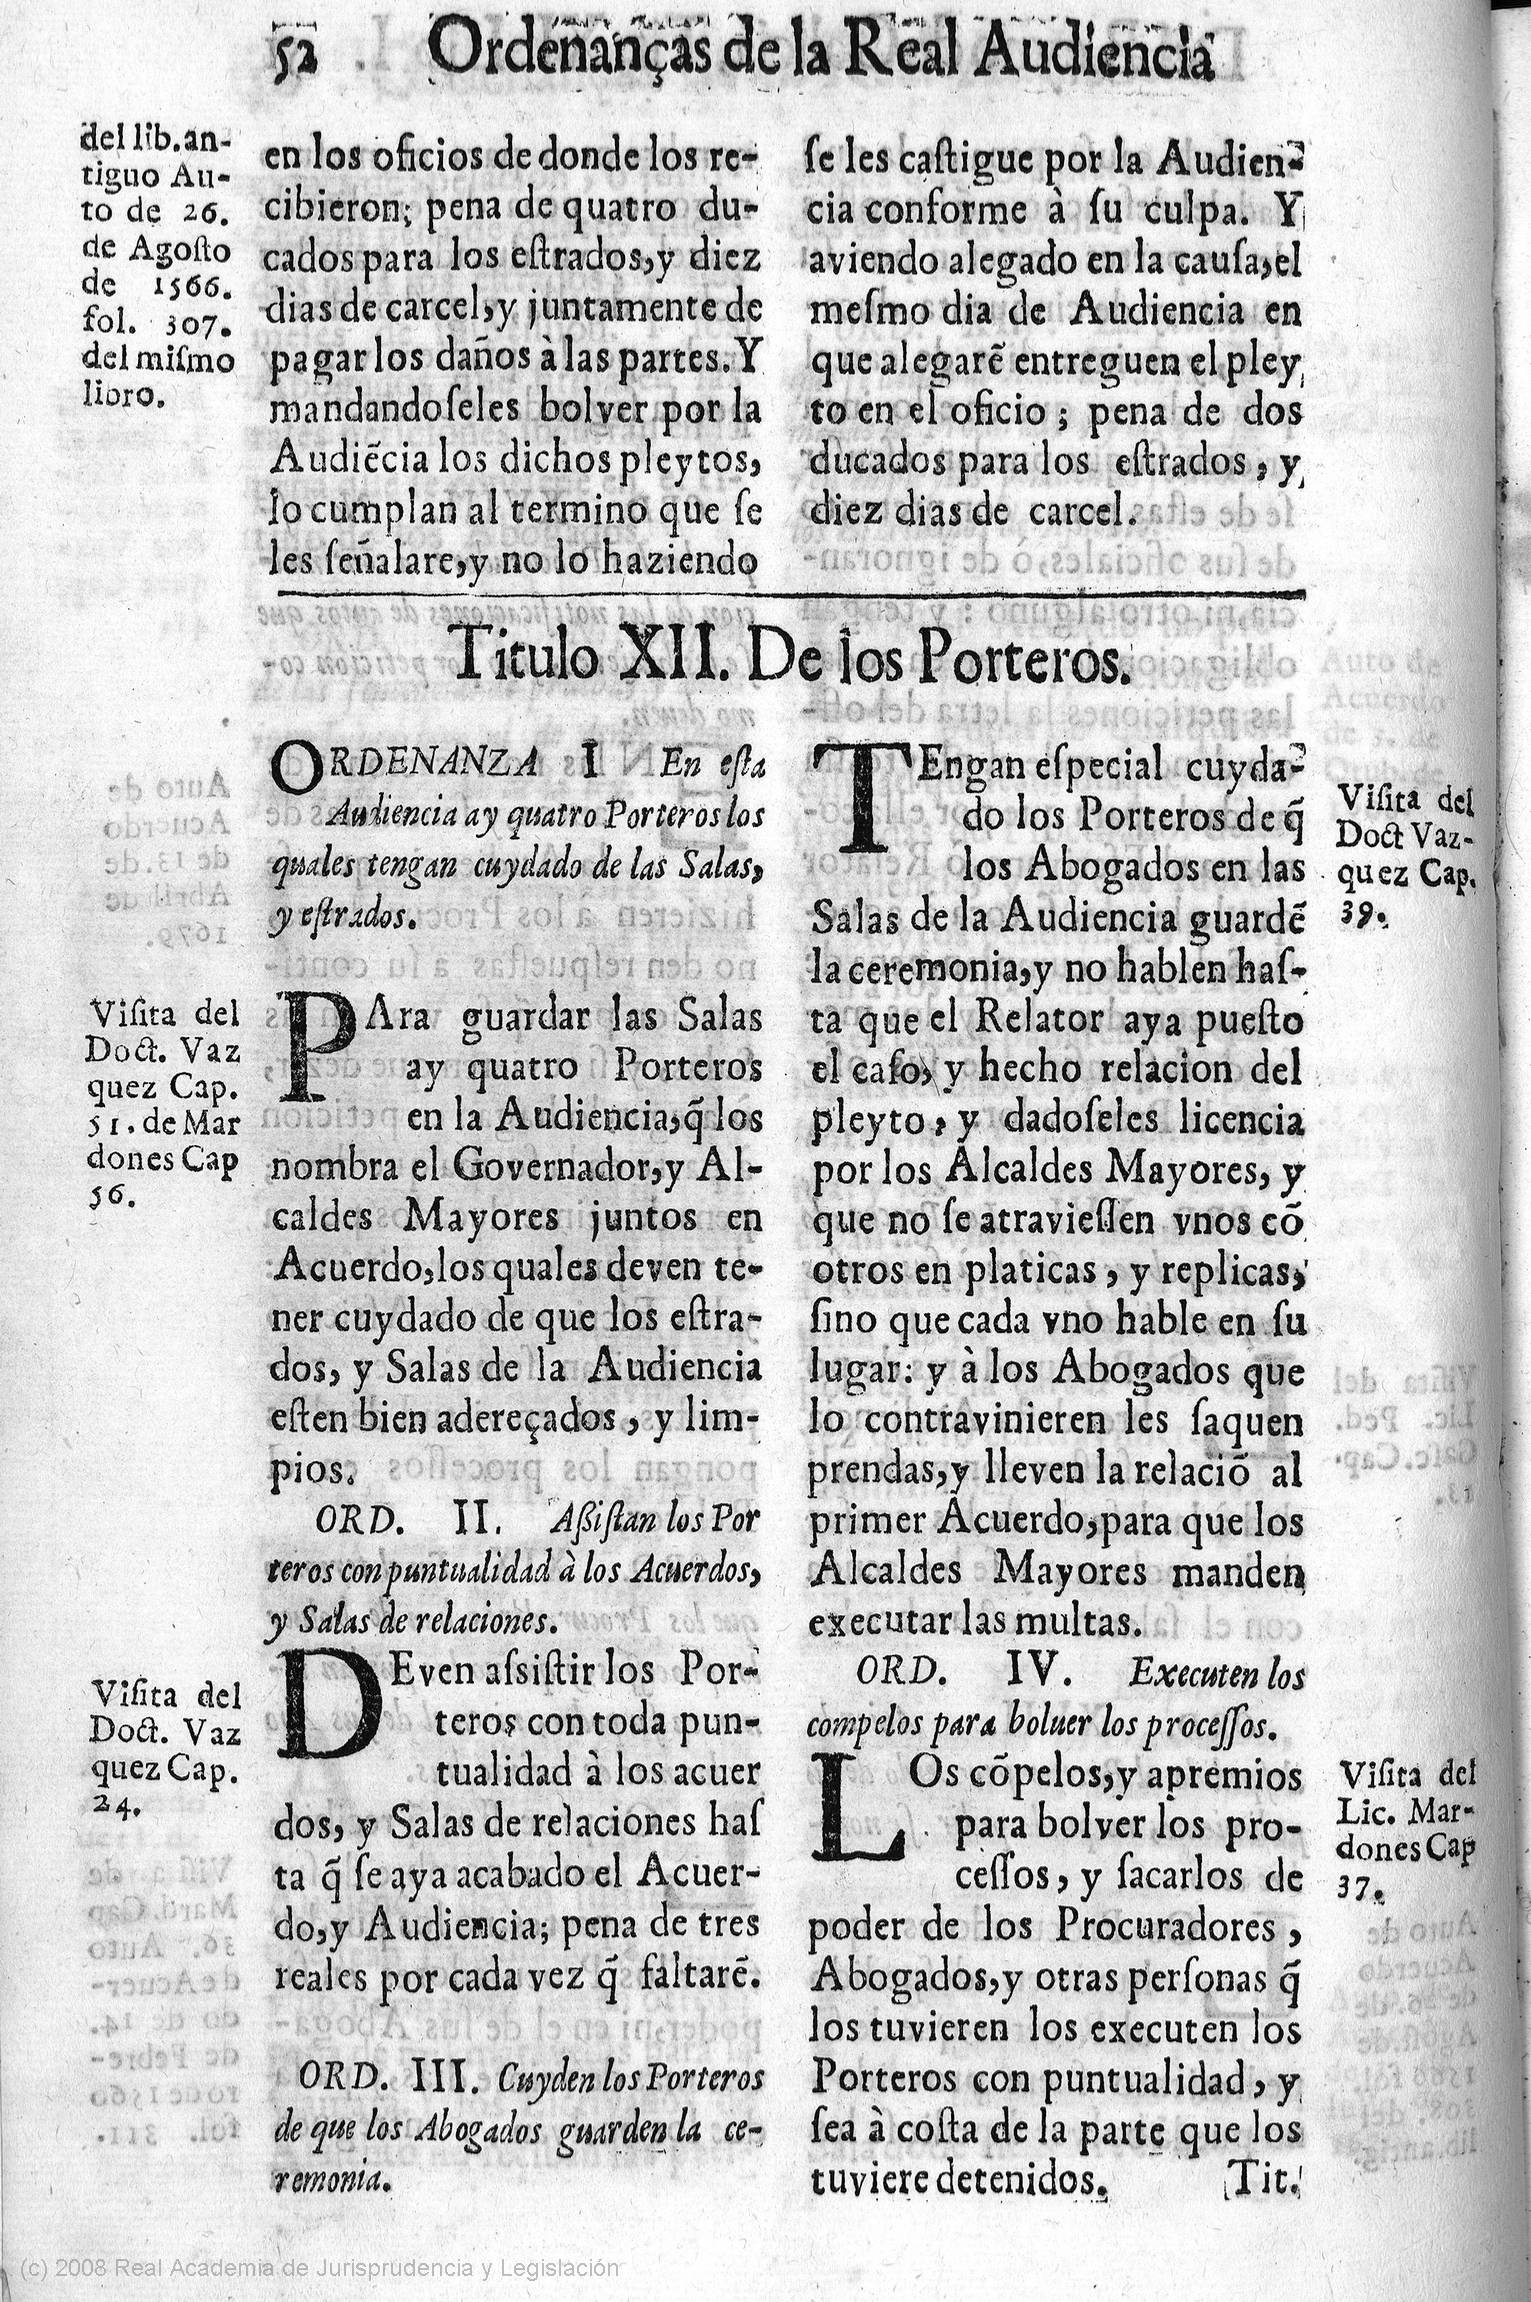 52 Ordenanças de la Real Audiencia
del lib. an-
tiguo Au-
to de 26.
de Agoſto
de 1566.
fol. 307.
del miſmo
libro.
en los oficios de donde los re-
cibieron; pena de quatro du-
cados para los eſtrados, y diez
dias de carcel, y juntamente de
pagar los daños à las partes. Y
mandandoſeles bolver por la
Audiẽcia los dichos pleytos,
lo cumplan al termino que ſe
les ſeñalare, y no lo haziendo
ſe les caſtigue por la Audien-
cia conforme à ſu culpa. Y
aviendo alegado en la cauſa, el
meſmo dia de Audiencia en
que alegarẽ entreguen el pley
to en el oficio; pena de dos
ducados para los eſtrados, y
diez dias de carcel.
Titulo XII. De los Porteros.
ORDENANZA I En eſta
Audiencia ay quatro Porteros los
quales tengan cuydado de las Salas,
y eſtrados.
Viſita del
Doct. Vaz
quez Cap.
51. de Mar
dones Cap
56.
PAra guardar las Salas
ay quatro Porteros
en la Audiencia, q̃ los
nombra el Governador, y Al-
caldes Mayores juntos en
Acuerdo, los quales deven te-
ner cuydado de que los eſtra-
dos, y Salas de la Audiencia
eſten bien adereçados, y lim-
pios.
ORD. II. Aſsiſtan los Por
teros con puntualidad à los Acuerdos,
y Salas de relaciones.
Viſita del
Doct. Vaz
quez Cap.
24.
DEven aſsiſtir los Por-
teros con toda pun-
tualidad à los acuer
dos, y Salas de relaciones haſ
ta q̃ ſe aya acabado el Acuer-
do, y Audiencia; pena de tres
reales por cada vez q̃ faltarẽ.
ORD. III. Cuyden los Porteros
de que los Abogados guarden la ce-
remonia.
TEngan eſpecial cuyda-
do los Porteros de q̃
los Abogados en las
Salas de la Audiencia guardẽ
la ceremonia, y no hablen haſ-
ta que el Relator aya pueſto
el caſo, y hecho relacion del
pleyto, y dadoſeles licencia
por los Alcaldes Mayores, y
que no ſe atravieſſen vnos cõ
otros en platicas, y replicas,
ſino que cada vno hable en ſu
lugar: y à los Abogados que
lo contravinieren les ſaquen
prendas, y lleven la relaciõ al
primer Acuerdo, para que los
Alcaldes Mayores manden
executar las multas.
Viſita del
Doct Vaz-
quez Cap.
39.
ORD. IV. Executen los
compelos para boluer los proceſſos.
LOs cõpelos, y apremios
para bolver los pro-
ceſſos, y ſacarlos de
poder de los Procuradores,
Abogados, y otras perſonas q̃
los tuvieren los executen los
Porteros con puntualidad, y
ſea à coſta de la parte que los
tuviere detenidos.
Viſita del
Lic. Mar-
dones Cap
37.
Tit.
(c) 2008 Real Academia de Jurisprudencia y Legislación